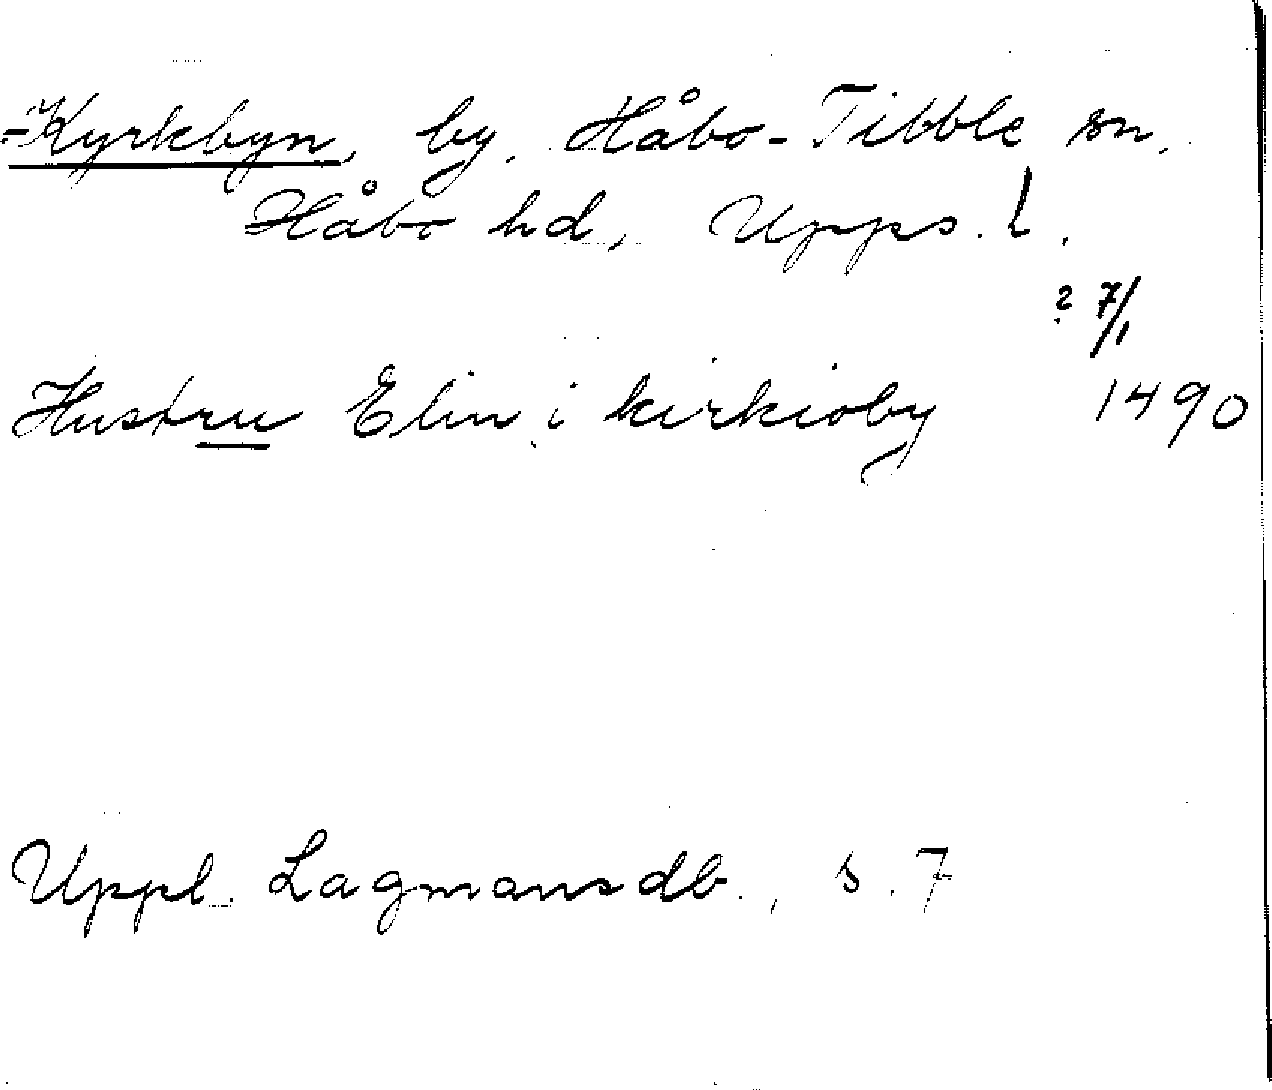 Kyrkbyn, by, Håbo-Tibble sn,
Håbo hd, Upps. l.
? 7/1
Hustru Elin i kirkioby 1490
Uppl. Lagmansdb., s. 7